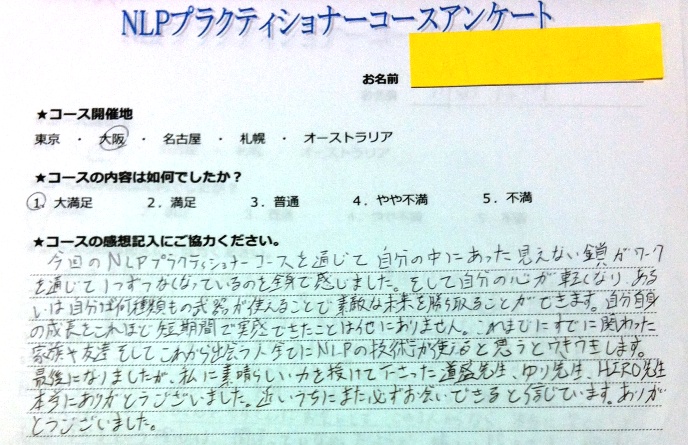 NLPプラクティショナーコースアンケート
お名前
★コース開催地
東京 ・ 大阪 ・ 名古屋 ・ 札幌 ・ オーストラリア
★コースの内容は如何でしたか？
1. 大満足 2. 満足 3. 普通 4. やや不満 5. 不満
★コースの感想記入にご協力ください。
今回のNLPプラクティショナーコースを通じて自分の中にあった見えない鎖がワーク
を通じて1つずつなくなっているのを全身で感じました。そして自分の心が軽くなり、ある
いは自分は何種類もの武器が使えることで素敵な未来を勝ち取ることができます。自分自身
の成長をこれほど短期間で実感できたことは他にありません。これまでにすでに関わった
家族や友達そしてこれから出会う人全てにNLPの技術が使えると思うとウキウキします。
最後になりましたが、私に素晴らしい力を授けて下さった道盛先生、ゆり先生、HIRO先生
本当にありがとうございました。近いうちにまた必ずお会いできると信じています。ありが
とうございました。